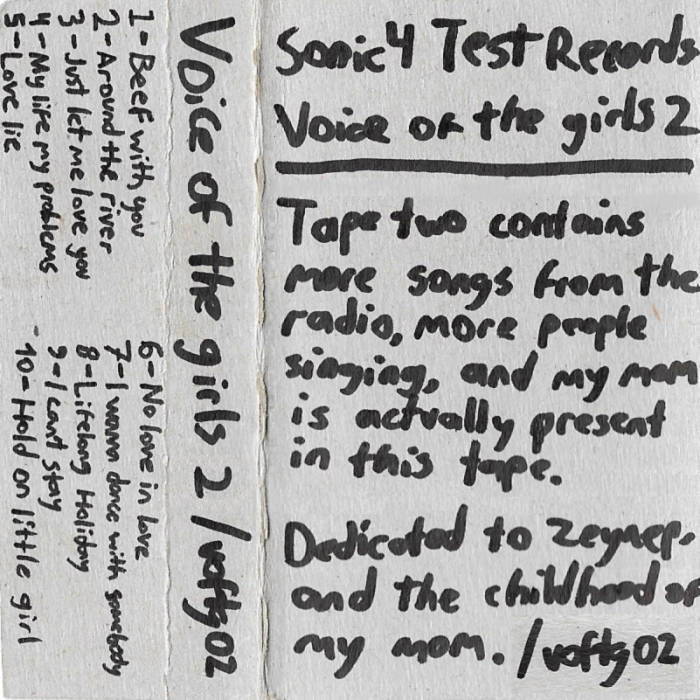 1-Beef with you
2-Around the river
3-Just let me love you
4-My life my problems
5-Love lie
6-No love in love
7-I wanna dance with somebody
8-Lifelong Holiday
9-I can't stay
10-Hold on little girl
Voice of the girls 2 /voftg02
Sonic4 Test Records
Voice of the girls 2
Tape two contains
more songs from the
radio, more people
singing, and my mom
is actually present
in this tape.
Dedicated to Zeynep.
and the childhood of
my mom. /voftg02